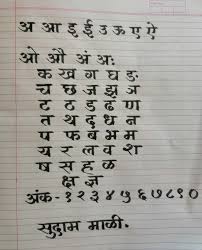 अ आ इ ई उ ऊ ए ऐ
ओ औ अं अः
क ख ग घ ङ
च छ ज झ ञ
ट ठ ड ढ ण
त थ द ध न
प फ ब भ म
य र ल व श
ष स ह ळ
क्ष ज्ञ
अंक - १ २ ३ ४ ५ ६ ७ ८ ९ ०
सुदाम माळी.